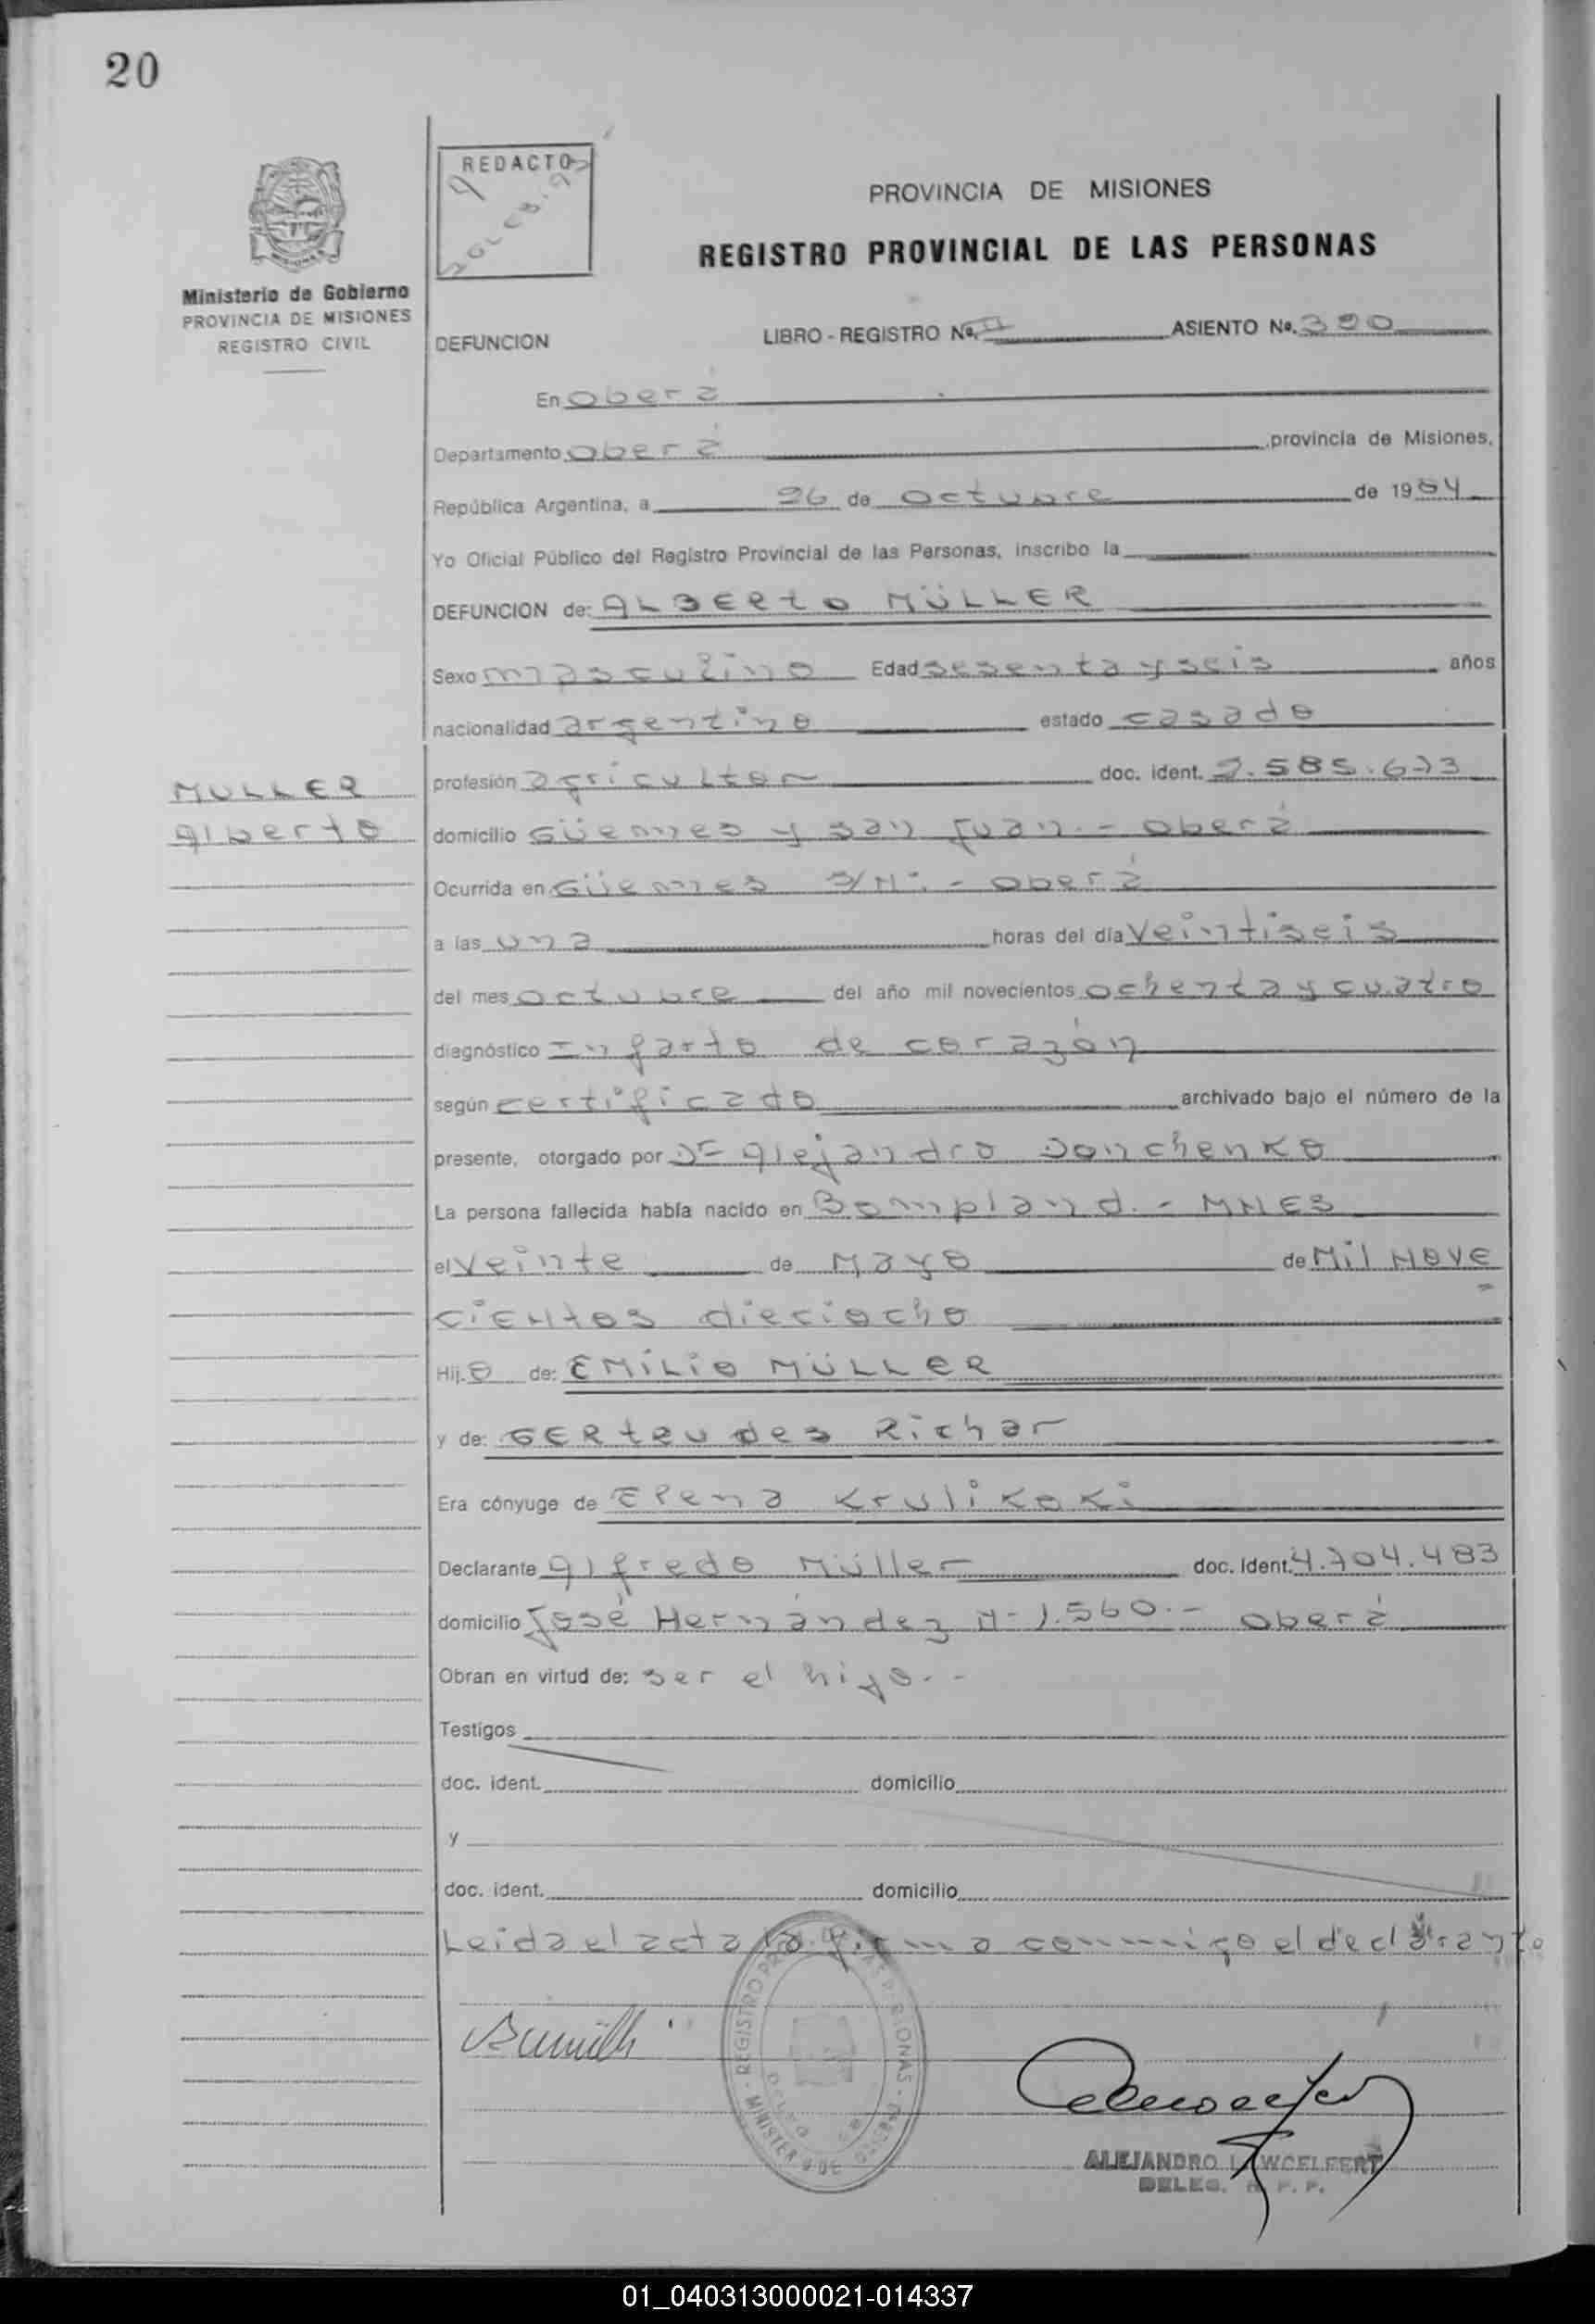 20
REDACTO
PROVINCIA DE MISIONES
REGISTRO PROVINCIAL DE LAS PERSONAS
Ministerio de Gobierno
PROVINCIA DE MISIONES
REGISTRO CIVIL
DEFUNCION LIBRO - REGISTRO No. II ASIENTO No. 390
En Oberá
Departamento Oberá provincia de Misiones,
República Argentina, a 26 de octubre de 1984
Yo Oficial Público del Registro Provincial de las Personas, inscribo la
DEFUNCION de: ALBERTO MÜLLER
Sexo masculino Edad sesenta y seis años
nacionalidad argentino estado casado
MULLER
Alberto
profesión agricultor doc. ident. 2.585.673
domicilio Güemes y san Juan.- Oberá
Ocurrida en Güemes S/Nº.- Oberá
a las una horas del día veintiseis
del mes octubre del año mil novecientos ochenta y cuatro
diagnóstico Infarto de corazón
según certificado archivado bajo el número de la
presente, otorgado por Dr Alejandro Donchenko
La persona fallecida había nacido en Bompland.- MNES
el veinte de Mayo de Mil Nove
cientos dieciocho
Hijo de: EMILIO MÜLLER
y de: GERtrudes Richar
Era cónyuge de Elena Krulikoki
Declarante Alfredo Müller doc. Ident. 4.704.483
domicilio José Hernández Nº 1.560.- Oberá
Obran en virtud de: ser el hijo.-
Testigos
doc. ident. domicilio
y
doc. ident. domicilio
Leida el acta la firma conmigo el declarante
ALEJANDRO WOELFERT
DELEG. R. P. P.
01_040313000021-014337